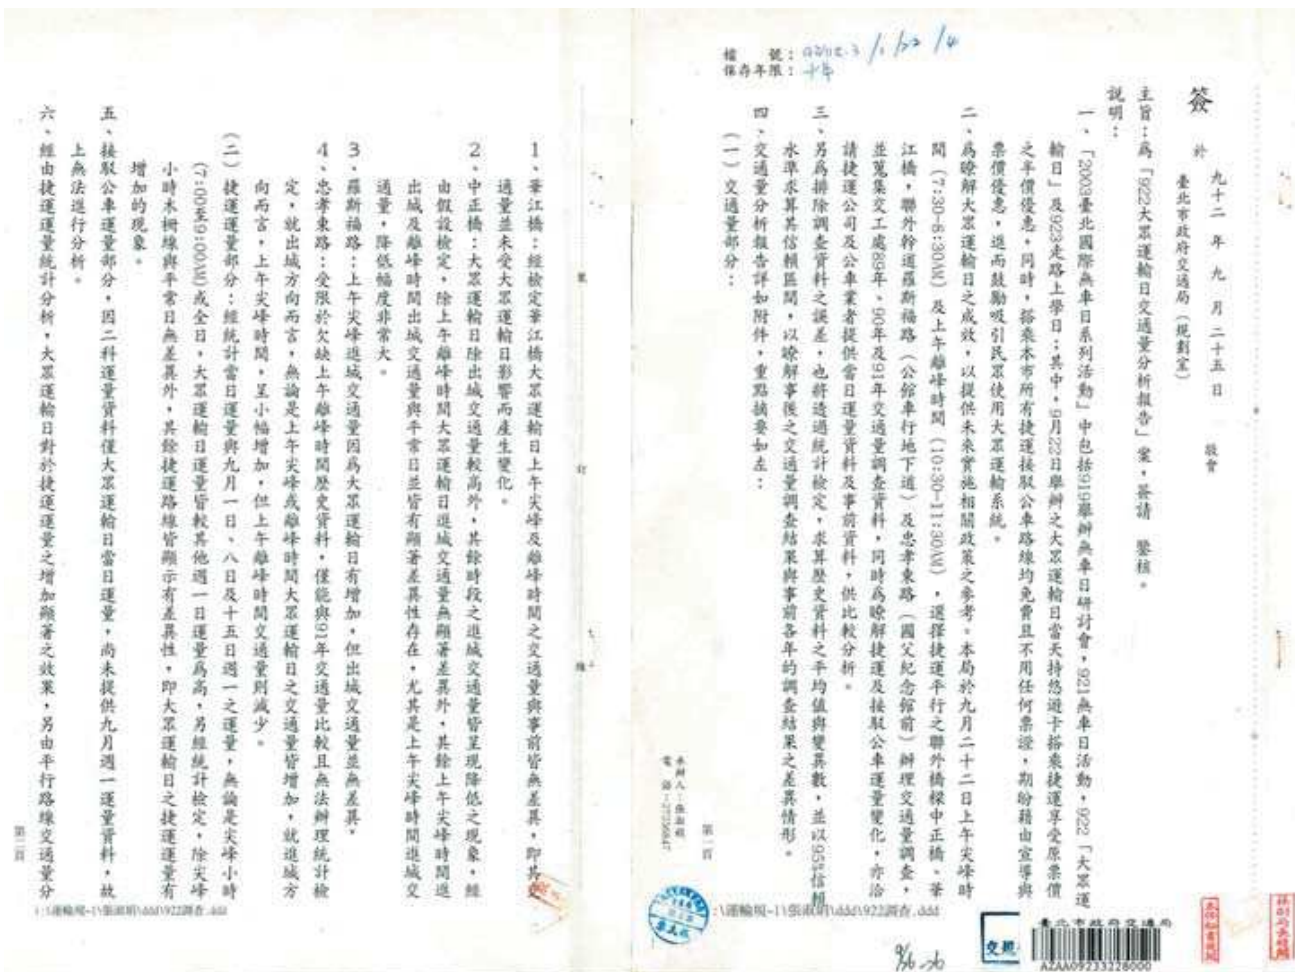 檔　　號：
保存年限：十年
簽　於　九十二年九月二十五日
臺北市政府交通局（規劃室）
敬會
主旨：為「922大眾運輸日交通量分析報告」案，簽請　鑒核。
說明：
一、「2003臺北國際無車日系列活動」中包括919舉辦無車日研討會，921無車日活動，922「大眾運
輸日」及923走路上學日；其中，9月22日舉辦之大眾運輸日當天持悠遊卡搭乘捷運享受原票價
之半價優惠，同時，搭乘本市所有捷運接駁公車路線均免費且不用任何票證，期盼藉由宣導與
票價優惠，進而鼓勵吸引民眾使用大眾運輸系統。
二、為瞭解大眾運輸日之成效，以提供未來實施相關政策之參考。本局於九月二十二日上午尖峰時
間（7:30-8:30AM）及上午離峰時間（10:30-11:30AM），選擇捷運平行之聯外橋樑中正橋、華
江橋，聯外幹道羅斯福路（公館車行地下道）及忠孝東路（國父紀念館前）辦理交通量調查，
並蒐集交工處89年、90年及91年交通量調查資料，同時為瞭解捷運及接駁公車運量變化，亦洽
請捷運公司及公車業者提供當日運量資料及事前資料，供比較分析。
三、另為排除調查資料之誤差，也將透過統計檢定，求算歷史資料之平均值與變異數，並以95%信賴
水準求算其信賴區間，以瞭解事後之交通量調查結果與事前各年的調查結果之差異情形。
四、交通量分析報告詳如附件，重點摘要如左：
（一）交通量部分：
承辦人：張淑娟
電　話：27256847
第一頁
:\運輸規~1\張淑娟\ddd\922調查.ddd
臺北市政府交通局
AZAA09233228000
交規
裝
訂
線
1、華江橋：經檢定華江橋大眾運輸日上午尖峰及離峰時間之交通量與事前皆無差異，即其交
通量並未受大眾運輸日影響而產生變化。
2、中正橋：大眾運輸日除出城交通量較高外，其餘時段之進城交通量皆呈現降低之現象，經
由假設檢定，除上午離峰時間大眾運輸日進城交通量無顯著差異外，其餘上午尖峰時間進
出城及離峰時間出城交通量與平常日並皆有顯著差異性存在，尤其是上午尖峰時間進城交
通量，降低幅度非常大。
3、羅斯福路：上午尖峰進城交通量因為大眾運輸日有增加，但出城交通量並無差異。
4、忠孝東路：受限於欠缺上午離峰時間歷史資料，僅能與91年交通量比較且無法辦理統計檢
定，就出城方向而言，無論是上午尖峰或離峰時間大眾運輸日之交通量皆增加，就進城方
向而言，上午尖峰時間，呈小幅增加，但上午離峰時間交通量則減少。
（二）捷運運量部分：經統計當日運量與九月一日、八日及十五日週一之運量，無論是尖峰小時
(7:00至9:00AM)或全日，大眾運輸日運量皆較其他週一日運量為高，另經統計檢定，除尖峰
小時木柵線與平常日無差異外，其餘捷運路線皆顯示有差異性，即大眾運輸日之捷運運量有
增加的現象。
五、接駁公車運量部分，因二科運量資料僅大眾運輸日當日運量，尚未提供九月週一運量資料，故
上無法進行分析。
六、經由捷運運量統計分析，大眾運輸日對於捷運運量之增加顯著之效果，另由平行路線交通量分
第二頁
:\運輸規~1\張淑娟\ddd\922調查.ddd